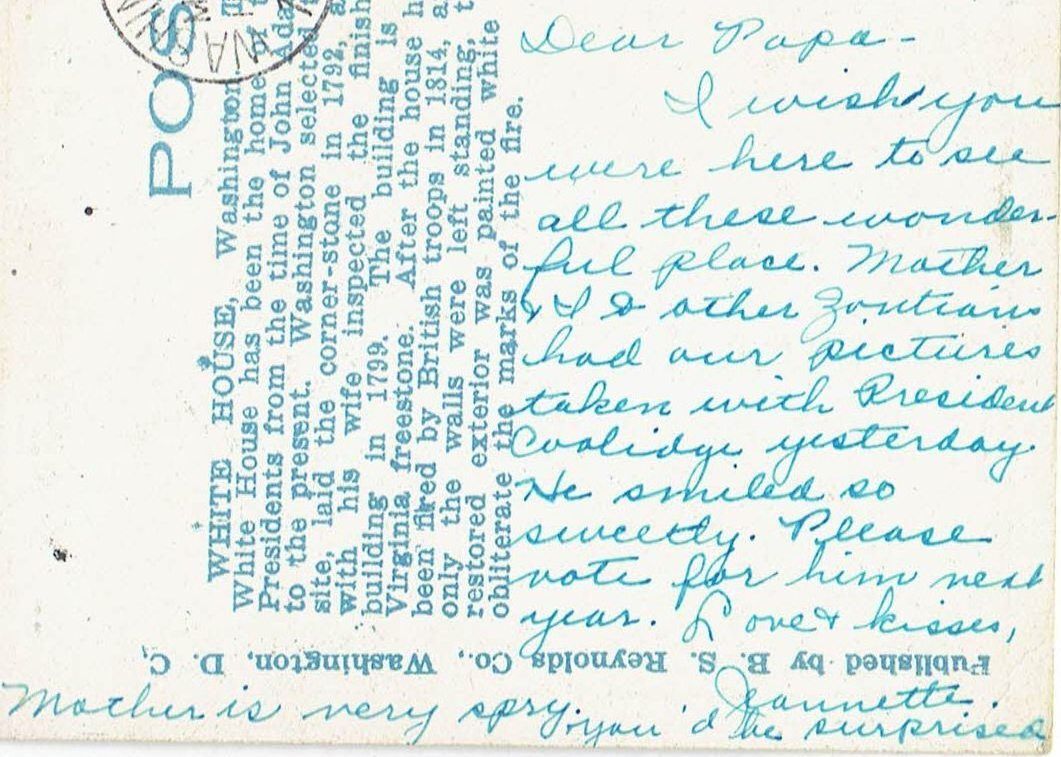 POS
WHITE HOUSE, Washington
White House has been the home of t
Presidents from the time of John Ada
to the present. Washington selected
site, laid the corner-stone in 1792, a
with his wife inspected the finish
building in 1799. The building is
Virginia freestone. After the house h
been fired by British troops in 1814, a
only the walls were left standing, t
restored exterior was painted white
obliterate the marks of the fire.
Dear Papa-
I wish you
were here to see
all these wonder-
ful place. Mother
& I & other Zontians
had our pictures
taken with President
Coolidge yesterday.
He smiled so
sweetly. Please
vote for him next
year. Love & kisses,
Jeannette.
Published by B. S. Reynolds Co., Washington, D. C.
Mother is very spry. you'd be surprised